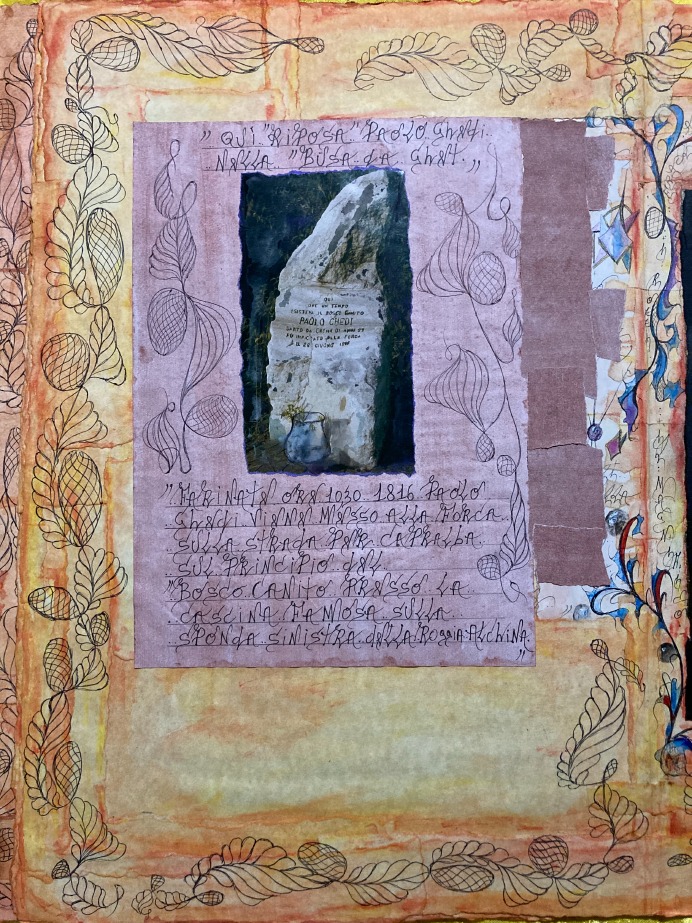 " QUI "RIPOSA" PAOLO GHEDI.
NELLA. "BUSA DA GHET."
QUI
OVE UN TEMPO
SORGEVA IL BOSCO CANITO
PAOLO GHEDI
NATO DA CATNA DI ANNI 25
FU IMPICCATO ALLA FORCA
IL 22 GIUGNO
" MATTINATA ORE 1030 1816 PAOLO
GHEDI VIENE MESSO ALLA FORCA
SULLA STRADA PER CAPRALBA
SUL PRINCIPIO DEL
"BOSCO CANITO" PRESSO LA
CASCINA FAMOSA SULLA
SPONDA SINISTRA DELLA ROGGIA ALCHINA
"